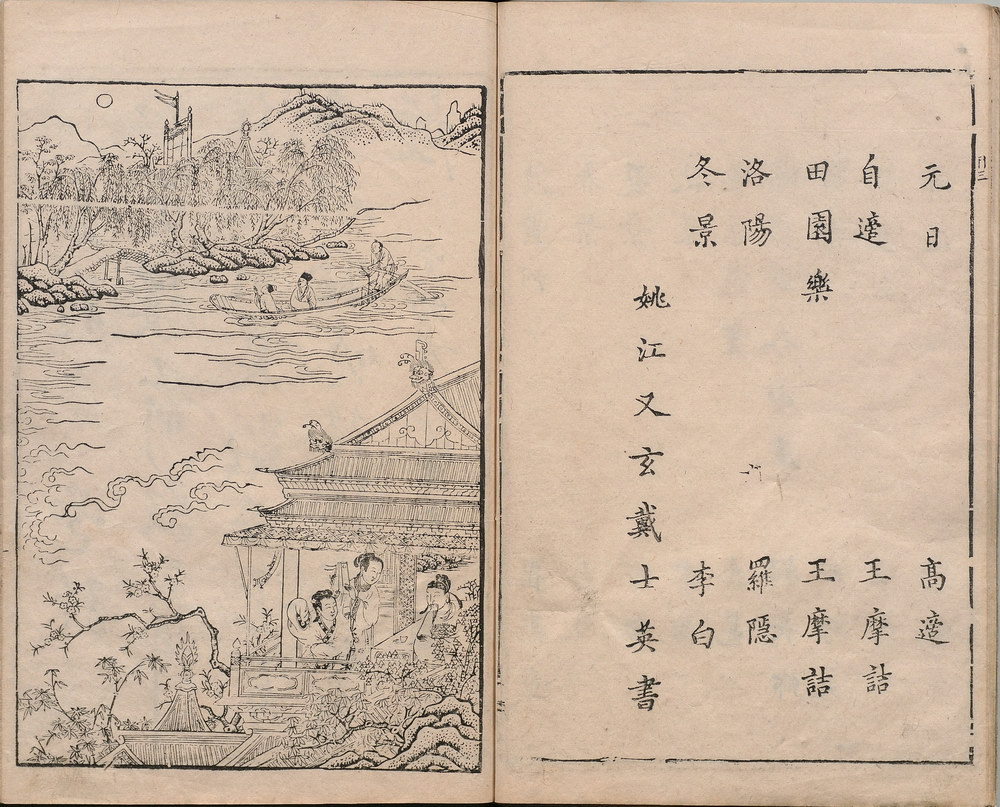 元日 高適
自適 王摩詰
田園樂 王摩詰
洛陽 羅隱
冬景 李白
姚江又玄戴士英書